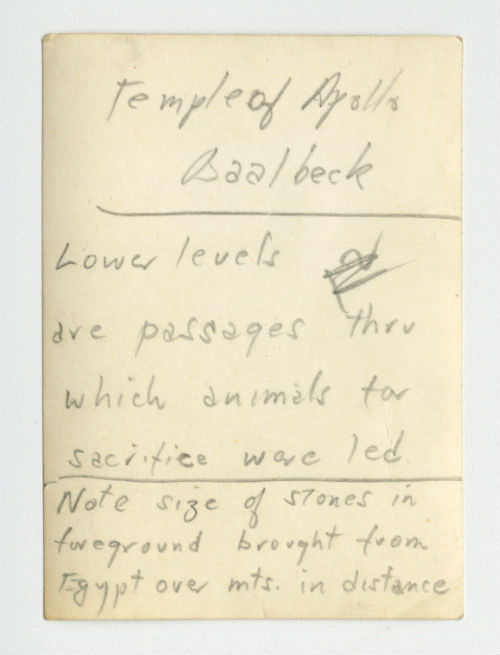 Temple of Apollo
Baalbeck
Lower levels
are passages thru
which animals for
sacrifice were led.
Note size of stones in
foreground brought from
Egypt over mts. in distance